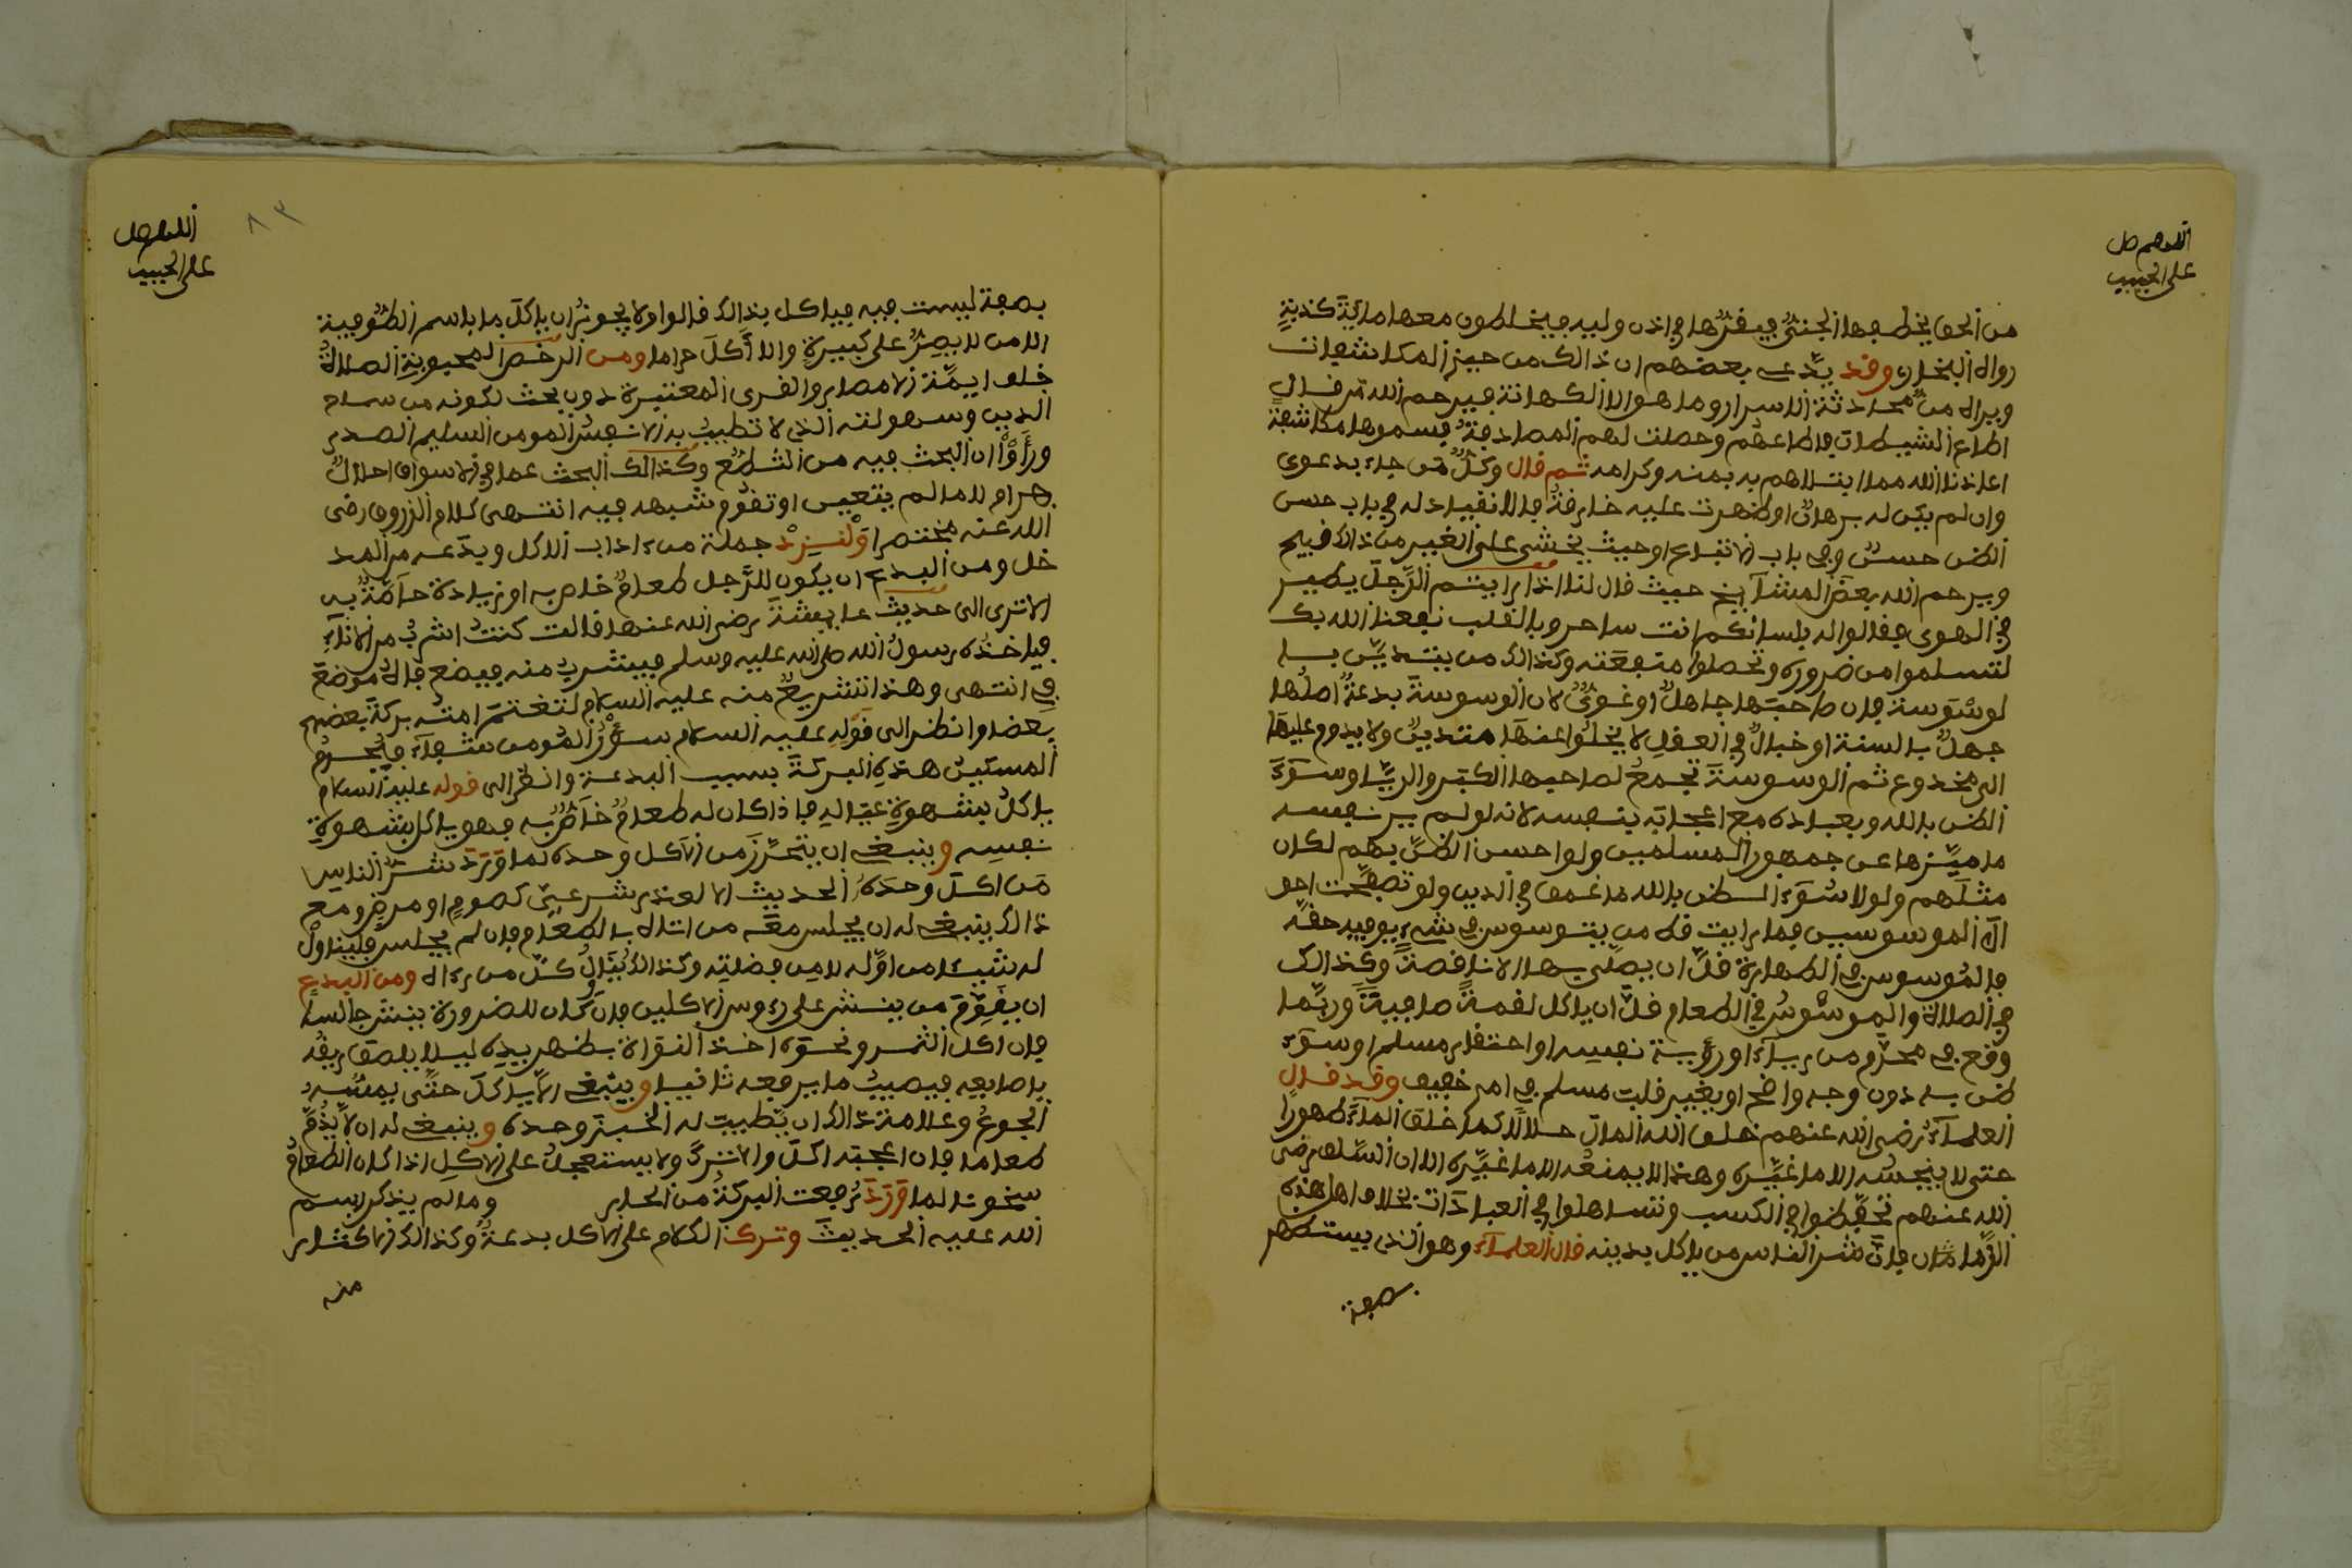 اللهم صل
على الحبيب
من الحق يخطفها الجني فيقرها في اذن وليه فيخلطون معها مائة كذبة
رواه البخاري وقد يدعي بعضهم ان ذالك من حيز المكاشفات
ويراه من محادثة الاسرار وما هو الا الكهانة فيرحم الله من قال
اطاع الشيطان فاطاعهم وحصلت لهم المصادفة فسموها مكاشفة
اعاذنا الله مما ابتلاهم به بمنه وكرامه ثم قال وكل من جاء بدعوى
وان لم يكن له برهان او ظهرت عليه خارقة فالانقياد له في باب حسن
الظن حسن وفي باب الاتباع او حيث يخشى على الغير من ذالك قبيح
ويرحم الله بعض المشايخ حيث قال لنا اذا رايتم الرجل يطير
في الهوى فقالوا له بلسانكم انت ساحر وبالقلب نفعنا الله بك
لتسلموا من ضرره وتحصلوا منفعته وكذالك من يتدين با
لوسوسة فان صاحبها جاهل او غوي لان الوسوسة بدعة اصلها
جهل بالسنة او خبال في العقل لا يخلوا عنها متدين ولا يدوم عليها
الا مخدوع ثم الوسوسة تجمع لصاحبها الكبر والريا وسوء
الظن بالله وبعباده مع اعجابه بنفسه لانه لو لم ير نفسه
ما ميزها عن جمهور المسلمين ولو احسن الظن بهم لكان
مثلهم ولولا سوء الظن بالله ما غمق في الدين ولو تصفحت احو
ال الموسوسين فما رايت قط من يتوسوس في شيء يوفيه حقه
فالموسوس في الطهارة قل ان يصلي بها الا ناقصة وكذالك
في الصلاة والموسوس في الطعام قل ان ياكل لقمة صافية وربما
وقع في محرم من رياء او رؤية نفسه او احتقار مسلم او سوء
ظن به دون وجه واضح او بغير قلب مسلم في امر خفيف وقد قال
العلماء رضي الله عنهم خلق الله المال حلالا كما خلق الماء طهورا
حتى لا ينجسه الا ما غيره وهذا لا يمنعه الا ما غيره الا ان السلف رضي
الله عنهم تحفظوا في الكسب وتساهلوا في العبادات بخلاف اهل هذه
الازمان فان شر الناس من ياكل بدينه قال العلماء وهو الذي يستظهر
بصفة
اللهم صل
على الحبيب
٨٣
بصفة ليست فيه فياكل بذالك قالوا ولا يجوز ان ياكل ما باسم الصوفية
الا من لا يصر على كبيرة والا اكل حراما ومن الرخص المحبوبة الصلاة
خلف ايمة الامصار والقرى المعتبرة دون بحث لكونه من سماح
الدين وسهولته الذي لا تطيب به الا نفس المومن السليم الصدر
وراوا ان البحث فيه من التنطع وكذالك البحث عما في الاسواق احلال
حرام لا ما لم يتعين او تقوم شبهه فيه انتهى كلام الزروق رضى
الله عنه مختصرا ولنزد جملة من ءاداب الاكل وبدعه من المد
خل ومن البدع ان يكون للرجل طعام خاص به او زيادة خاصة به
الا ترى الى حديث عايشة رضي الله عنها قالت كنت اشرب من الاناء
فياخذه رسول الله صلى الله عليه وسلم فيشرب منه فيضع فاه موضع
في انتهى وهذا تشريع منه عليه السلام لتغتنم امته بركة بعضهم
بعضا وانظر الى قوله عليه السلام سؤر المومن شفاء فيحرم
المسكين هذه البركة بسبب البدعة وانظر الى قوله عليه السلام
ياكل بشهوة عياله فاذا كان له طعام خاص به فهو ياكل بشهوة
نفسه وينبغي ان يتحرز من الاكل وحده لما ورد شر الناس
من اكل وحده الحديث الا لعذر شرعي كصوم او مرض ومع
ذالك ينبغي له ان يجلس معه من اتاه بالطعام فان لم يجلس فليناول
له شيئا من اوله لا من فضلته وكذالك كل من رءاه ومن البدع
ان يقوم من ينش على رءوس الاكلين فان كان للضرورة ينش جالسا
فان اكل التمر ونحوه اخذ النواة بظهر يده ليلا يلصق ريقه
باصابعه فيصيب ما يرفعه ثانيا وينبغي الا ياكل حتى يمسه
الجوع وعلامة ذالك ان يطيب له الخبز وحده وينبغي له ان لا يذم
طعاما فان اعجبه اكل والا ترك ولا يستعجل على الاكل اذا كان الطعام
سخونا لما ورد رفعت البركة من الحار وما لم يذكر اسم
الله عليه الحديث وترك الكلام على الاكل بدعة وكذالك الاكثار
منه